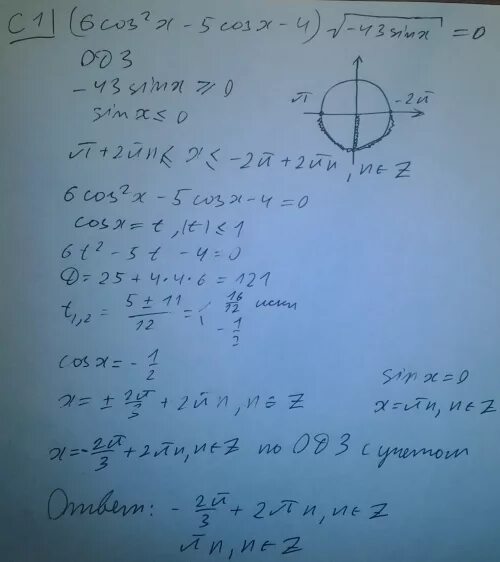 C1 (6cos²x - 5cosx - 4)√-43sinx = 0
ОДЗ
-43sinx ≥ 0
sinx ≤ 0
π -2π
π + 2πn ≤ x ≤ -2π + 2πn, n ∈ Z
6cos²x - 5cosx - 4 = 0
cosx = t, |t| ≤ 1
6t² - 5t - 4 = 0
D = 25 + 4·4·6 = 121
t₁,₂ = (5 ± 11)/12 = ⟨ 16/12
-1/2
cosx = -1/2
x = ± 2π/3 + 2πn, n ∈ Z
sinx = 0
x = πn, n ∈ Z
x = -2π/3 + 2πn, n ∈ Z по ОДЗ с учетом
Ответ: -2π/3 + 2πn, n ∈ Z
πn, n ∈ Z